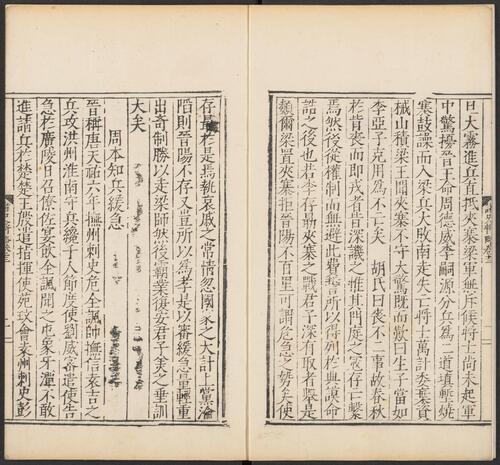 旦大霧進兵直抵夾寨梁軍無斥候將士尚未起軍
中驚擾晉王命周德威李嗣源分兵為二道填塹燒
寨鼓譟而入梁兵大敗南走失亡將士萬計委棄資
械山積梁王聞夾寨不守大驚既而歎曰生子當如
李亞子克用為不亡矣 胡氏曰喪不二事故春秋
於背喪而即戎者皆深譏之惟其門庭之寇存亡繫
焉然後從權制而無避此費誓所以得列於典謨命
誥之後也若李存勗夾寨之戰君子深有取者蓋是
麹爾梁置夾寨拒晉陽不百里可謂危急之勢矣使
存勗於是焉執哀戚之常情忽國家之大計上黨淪
陷則晉陽不存又豈所以為孝是以審緩急量輕重
出奇制勝以走梁師然後霸業復安君子美之垂訓
大矣
周本知兵緩急
晉稱唐天祐六年撫州刺史危全諷帥撫信袁吉之
兵攻洪州淮南守兵纔千人節度使劉威密遣使告
急於廣陵日召僚佐宴飲全諷聞之屯象牙潭不敢
進請兵於楚楚王殷遣指揮使苑玫會袁州刺史彭